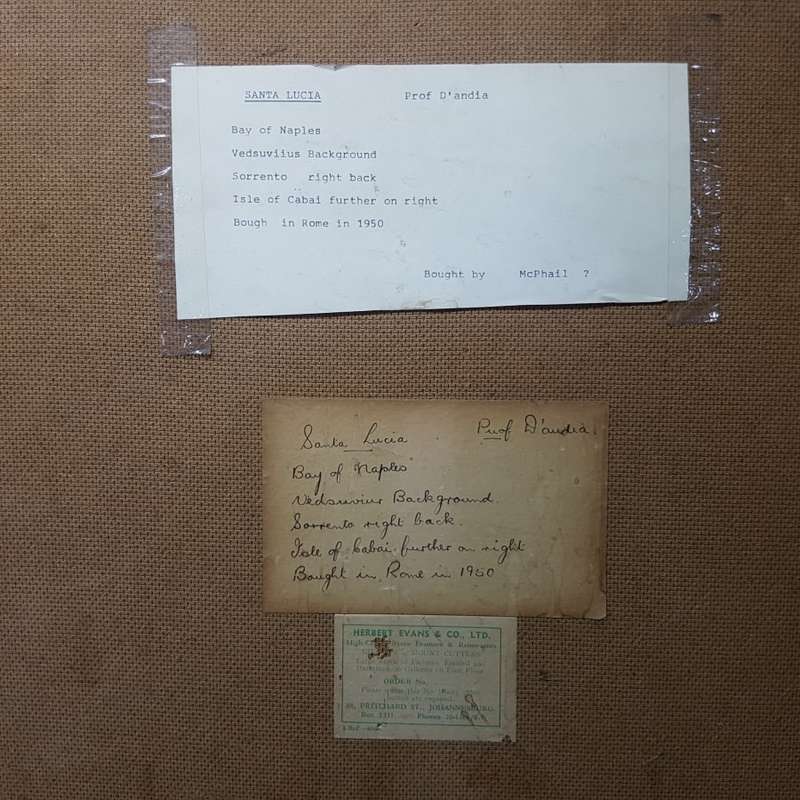 SANTA LUCIA Prof D'andia
Bay of Naples
Vedsuviius Background
Sorrento right back
Isle of Cabai further on right
Bough in Rome in 1950
Bought by McPhail ?
Santa Lucia Prof D'andia.
Bay of Naples
Vedsuvius Background.
Sorrento right back.
Isle of Cabai further on right
Bought in Rome in 1950
HERBERT EVANS & CO., LTD.
MOUNT CUTTERS
ORDER No.
PRITCHARD ST., JOHANNESBURG
Box Phones